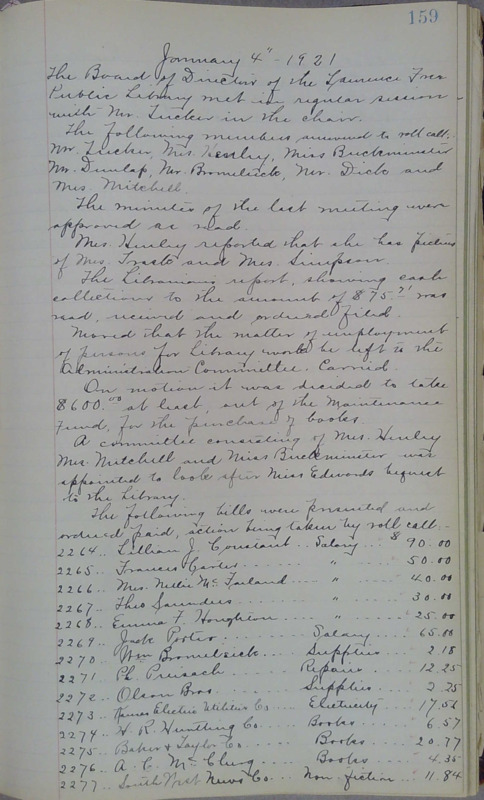 159
January 4" - 1921
The Board of Director of the Lawrence Free
Public Library met in regular session
with Mr. Tucker in the chair.
The following members answered to roll call:-
Mr. Tucker, Mrs. Henley, Miss Buckminster
Mr. Dunlap, Mr. Bromelsick, Mr. Dick and
Mrs. Mitchell.
The minutes of the last meeting were
approved as read.
Mrs. Henley reported that she has pictures
of Mrs. and Mrs. Simpson.
The Librarians report, showing cash
collections to the amount of $75.71 was
read, received and ordered filed.
Moved that the matter of employment
of persons for Library work be left to the
Administration Committee. Carried.
On motion it was decided to take
$600.00 at least, out of the Maintenance
Fund, for the purchase of books.
A committee consisting of Mrs. Henley
Mrs. Mitchell and Miss Buckminster was
appointed to look after Miss Edwards bequest
to the Library.
The following bills were presented and
ordered paid, action being taken by roll call:-
2264.. Lillian J. Constant .. Salary ... $ 90.00
2265.. Frances " 50.00
2266.. Mrs. Nellie McFarland .... " ... 40.00
2267.. Theo Saunders ..... " ... 30.00
2268.. Emma F. Houghton .... " ... 25.00
2269.. Jack Porter ........ Salary .... 65.00
2270.. Wm Bromelsick .... Supplies .. 2.18
2271 Ph. Preusach ..... Repairs ... 12.25
2272.. Olson Bros ...... Supplies ... 2.25
2273.. Kansas Electric Utilities Co .. Electricity .. 17.56
2274.. H. R. Huntting Co ... Books ... 6.57
2275.. Baker & Taylor Co ..... Books .... 20.77
2276.. A. C. McClurg ..... Books .... 4.35
2277.. South West News Co... Non-fiction ... 11.84